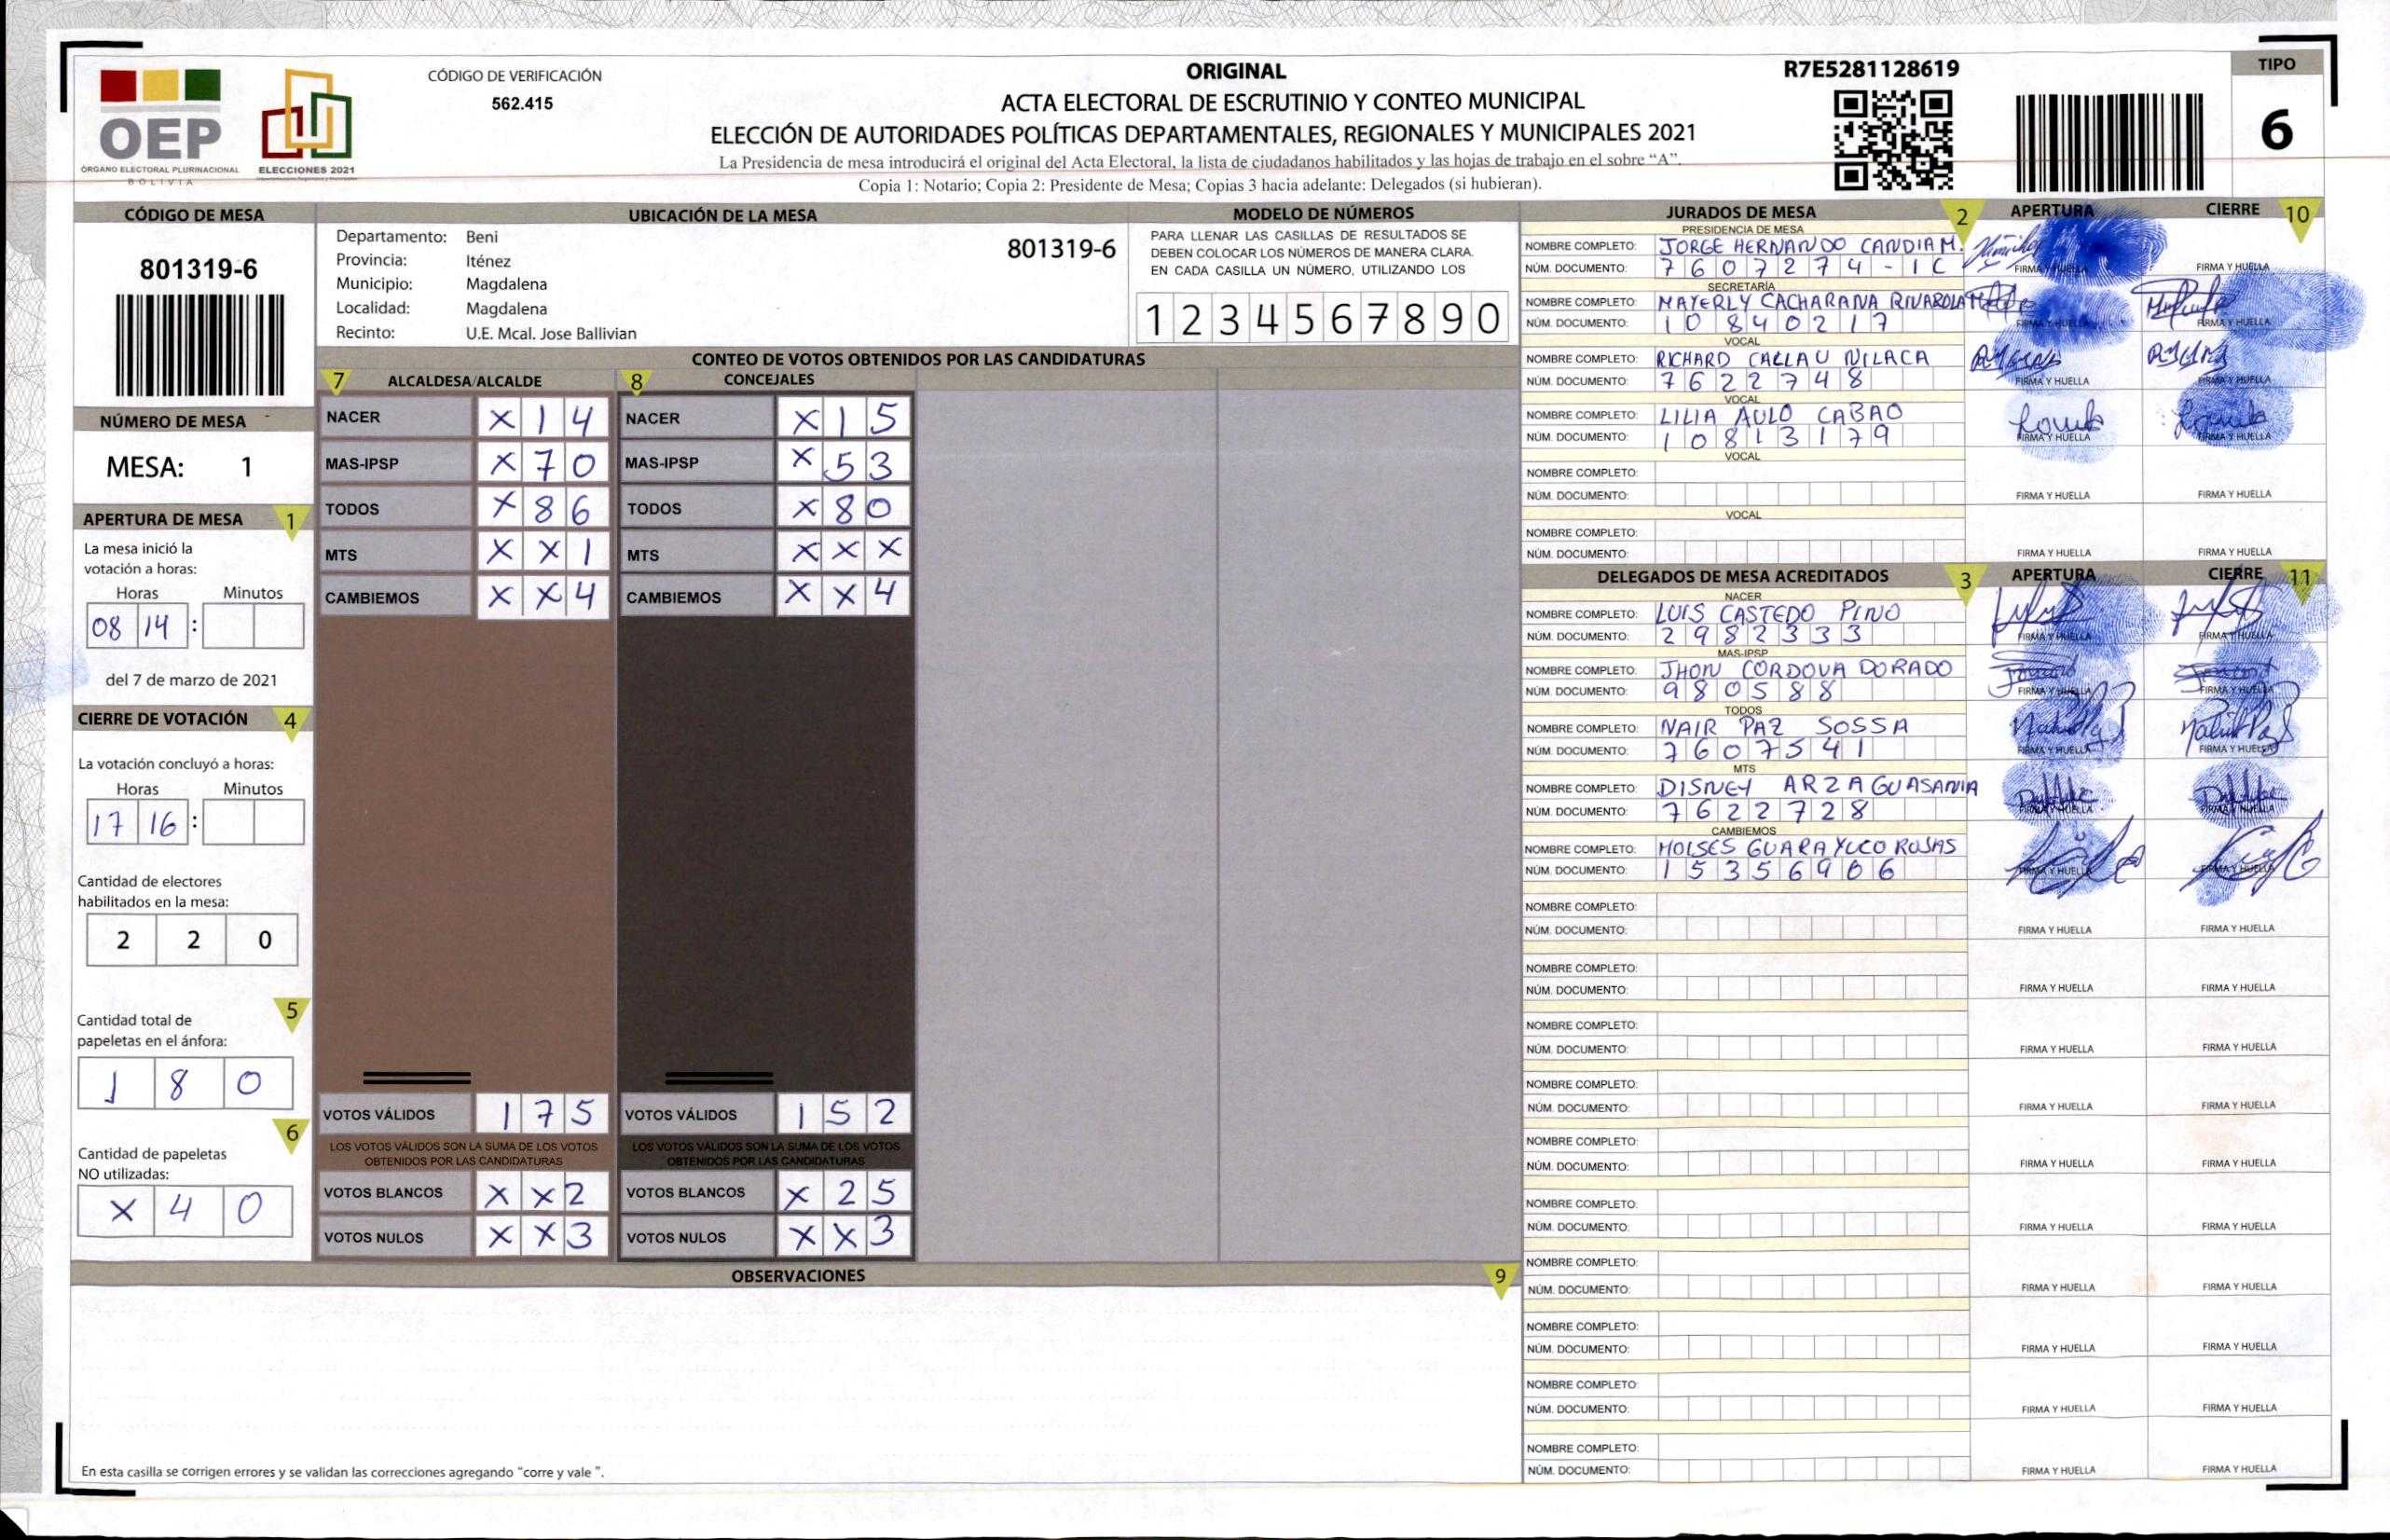 OEP
ÓRGANO ELECTORAL PLURINACIONAL
BOLIVIA
ELECCIONES 2021
CÓDIGO DE VERIFICACIÓN
562.415
ORIGINAL
ACTA ELECTORAL DE ESCRUTINIO Y CONTEO MUNICIPAL
ELECCIÓN DE AUTORIDADES POLÍTICAS DEPARTAMENTALES, REGIONALES Y MUNICIPALES 2021
La Presidencia de mesa introducirá el original del Acta Electoral, la lista de ciudadanos habilitados y las hojas de trabajo en el sobre “A”.
Copia 1: Notario; Copia 2: Presidente de Mesa; Copias 3 hacia adelante: Delegados (si hubieran).
R7E5281128619
TIPO
6
CÓDIGO DE MESA
801319-6
NÚMERO DE MESA
MESA: 1
APERTURA DE MESA 1
La mesa inició la
votación a horas:
Horas Minutos
08 14 :
del 7 de marzo de 2021
CIERRE DE VOTACIÓN 4
La votación concluyó a horas:
Horas Minutos
17 16 :
Cantidad de electores
habilitados en la mesa:
2 2 0
5
Cantidad total de
papeletas en el ánfora:
1 8 0
6
Cantidad de papeletas
NO utilizadas:
X 4 0
UBICACIÓN DE LA MESA
Departamento: Beni
Provincia: Iténez
Municipio: Magdalena
Localidad: Magdalena
Recinto: U.E. Mcal. Jose Ballivian
801319-6
MODELO DE NÚMEROS
PARA LLENAR LAS CASILLAS DE RESULTADOS SE
DEBEN COLOCAR LOS NÚMEROS DE MANERA CLARA.
EN CADA CASILLA UN NÚMERO, UTILIZANDO LOS
1 2 3 4 5 6 7 8 9 0
CONTEO DE VOTOS OBTENIDOS POR LAS CANDIDATURAS
7 ALCALDESA/ALCALDE
NACER X 1 4
MAS-IPSP X 7 0
TODOS X 8 6
MTS X X 1
CAMBIEMOS X X 4
VOTOS VÁLIDOS 1 7 5
LOS VOTOS VÁLIDOS SON LA SUMA DE LOS VOTOS
OBTENIDOS POR LAS CANDIDATURAS
VOTOS BLANCOS X X 2
VOTOS NULOS X X 3
8 CONCEJALES
NACER X 1 5
MAS-IPSP X 5 3
TODOS X 8 0
MTS X X X
CAMBIEMOS X X 4
VOTOS VÁLIDOS 1 5 2
LOS VOTOS VÁLIDOS SON LA SUMA DE LOS VOTOS
OBTENIDOS POR LAS CANDIDATURAS
VOTOS BLANCOS X 2 5
VOTOS NULOS X X 3
OBSERVACIONES 9
En esta casilla se corrigen errores y se validan las correcciones agregando “corre y vale ”.
JURADOS DE MESA 2 APERTURA CIERRE 10
PRESIDENCIA DE MESA
NOMBRE COMPLETO: JORGE HERNANDO CANDIA M.
NÚM. DOCUMENTO: 7607274-1C FIRMA Y HUELLA FIRMA Y HUELLA
SECRETARÍA
NOMBRE COMPLETO: MAYERLY CACHARANA RIVAROLA
NÚM. DOCUMENTO: 10840217 FIRMA Y HUELLA FIRMA Y HUELLA
VOCAL
NOMBRE COMPLETO: RICHARD CALLAU NILACA
NÚM. DOCUMENTO: 7622748 FIRMA Y HUELLA FIRMA Y HUELLA
VOCAL
NOMBRE COMPLETO: LILIA AULO CABAO
NÚM. DOCUMENTO: 10813179 FIRMA Y HUELLA FIRMA Y HUELLA
VOCAL
NOMBRE COMPLETO:
NÚM. DOCUMENTO: FIRMA Y HUELLA FIRMA Y HUELLA
VOCAL
NOMBRE COMPLETO:
NÚM. DOCUMENTO: FIRMA Y HUELLA FIRMA Y HUELLA
DELEGADOS DE MESA ACREDITADOS 3 APERTURA CIERRE 11
NACER
NOMBRE COMPLETO: LUIS CASTEDO PINO
NÚM. DOCUMENTO: 2982333 FIRMA Y HUELLA FIRMA Y HUELLA
MAS-IPSP
NOMBRE COMPLETO: JHON CORDOVA DORADO
NÚM. DOCUMENTO: 980588 FIRMA Y HUELLA FIRMA Y HUELLA
TODOS
NOMBRE COMPLETO: NAIR PAZ SOSSA
NÚM. DOCUMENTO: 7607541 FIRMA Y HUELLA FIRMA Y HUELLA
MTS
NOMBRE COMPLETO: DISNEY ARZA GUASANIA
NÚM. DOCUMENTO: 7622728 FIRMA Y HUELLA FIRMA Y HUELLA
CAMBIEMOS
NOMBRE COMPLETO: MOISES GUARAYUCO ROJAS
NÚM. DOCUMENTO: 15356906 FIRMA Y HUELLA FIRMA Y HUELLA
NOMBRE COMPLETO:
NÚM. DOCUMENTO: FIRMA Y HUELLA FIRMA Y HUELLA
NOMBRE COMPLETO:
NÚM. DOCUMENTO: FIRMA Y HUELLA FIRMA Y HUELLA
NOMBRE COMPLETO:
NÚM. DOCUMENTO: FIRMA Y HUELLA FIRMA Y HUELLA
NOMBRE COMPLETO:
NÚM. DOCUMENTO: FIRMA Y HUELLA FIRMA Y HUELLA
NOMBRE COMPLETO:
NÚM. DOCUMENTO: FIRMA Y HUELLA FIRMA Y HUELLA
NOMBRE COMPLETO:
NÚM. DOCUMENTO: FIRMA Y HUELLA FIRMA Y HUELLA
NOMBRE COMPLETO:
NÚM. DOCUMENTO: FIRMA Y HUELLA FIRMA Y HUELLA
NOMBRE COMPLETO:
NÚM. DOCUMENTO: FIRMA Y HUELLA FIRMA Y HUELLA
NOMBRE COMPLETO:
NÚM. DOCUMENTO: FIRMA Y HUELLA FIRMA Y HUELLA
NOMBRE COMPLETO:
NÚM. DOCUMENTO: FIRMA Y HUELLA FIRMA Y HUELLA